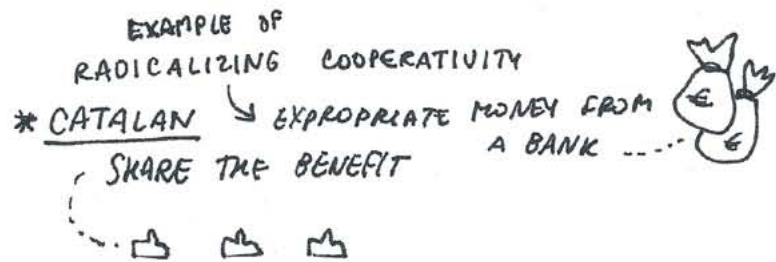 EXAMPLE OF
RADICALIZING COOPERATIVITY
* CATALAN ↘ EXPROPRIATE MONEY FROM
A BANK
SHARE THE BENEFIT
€
€